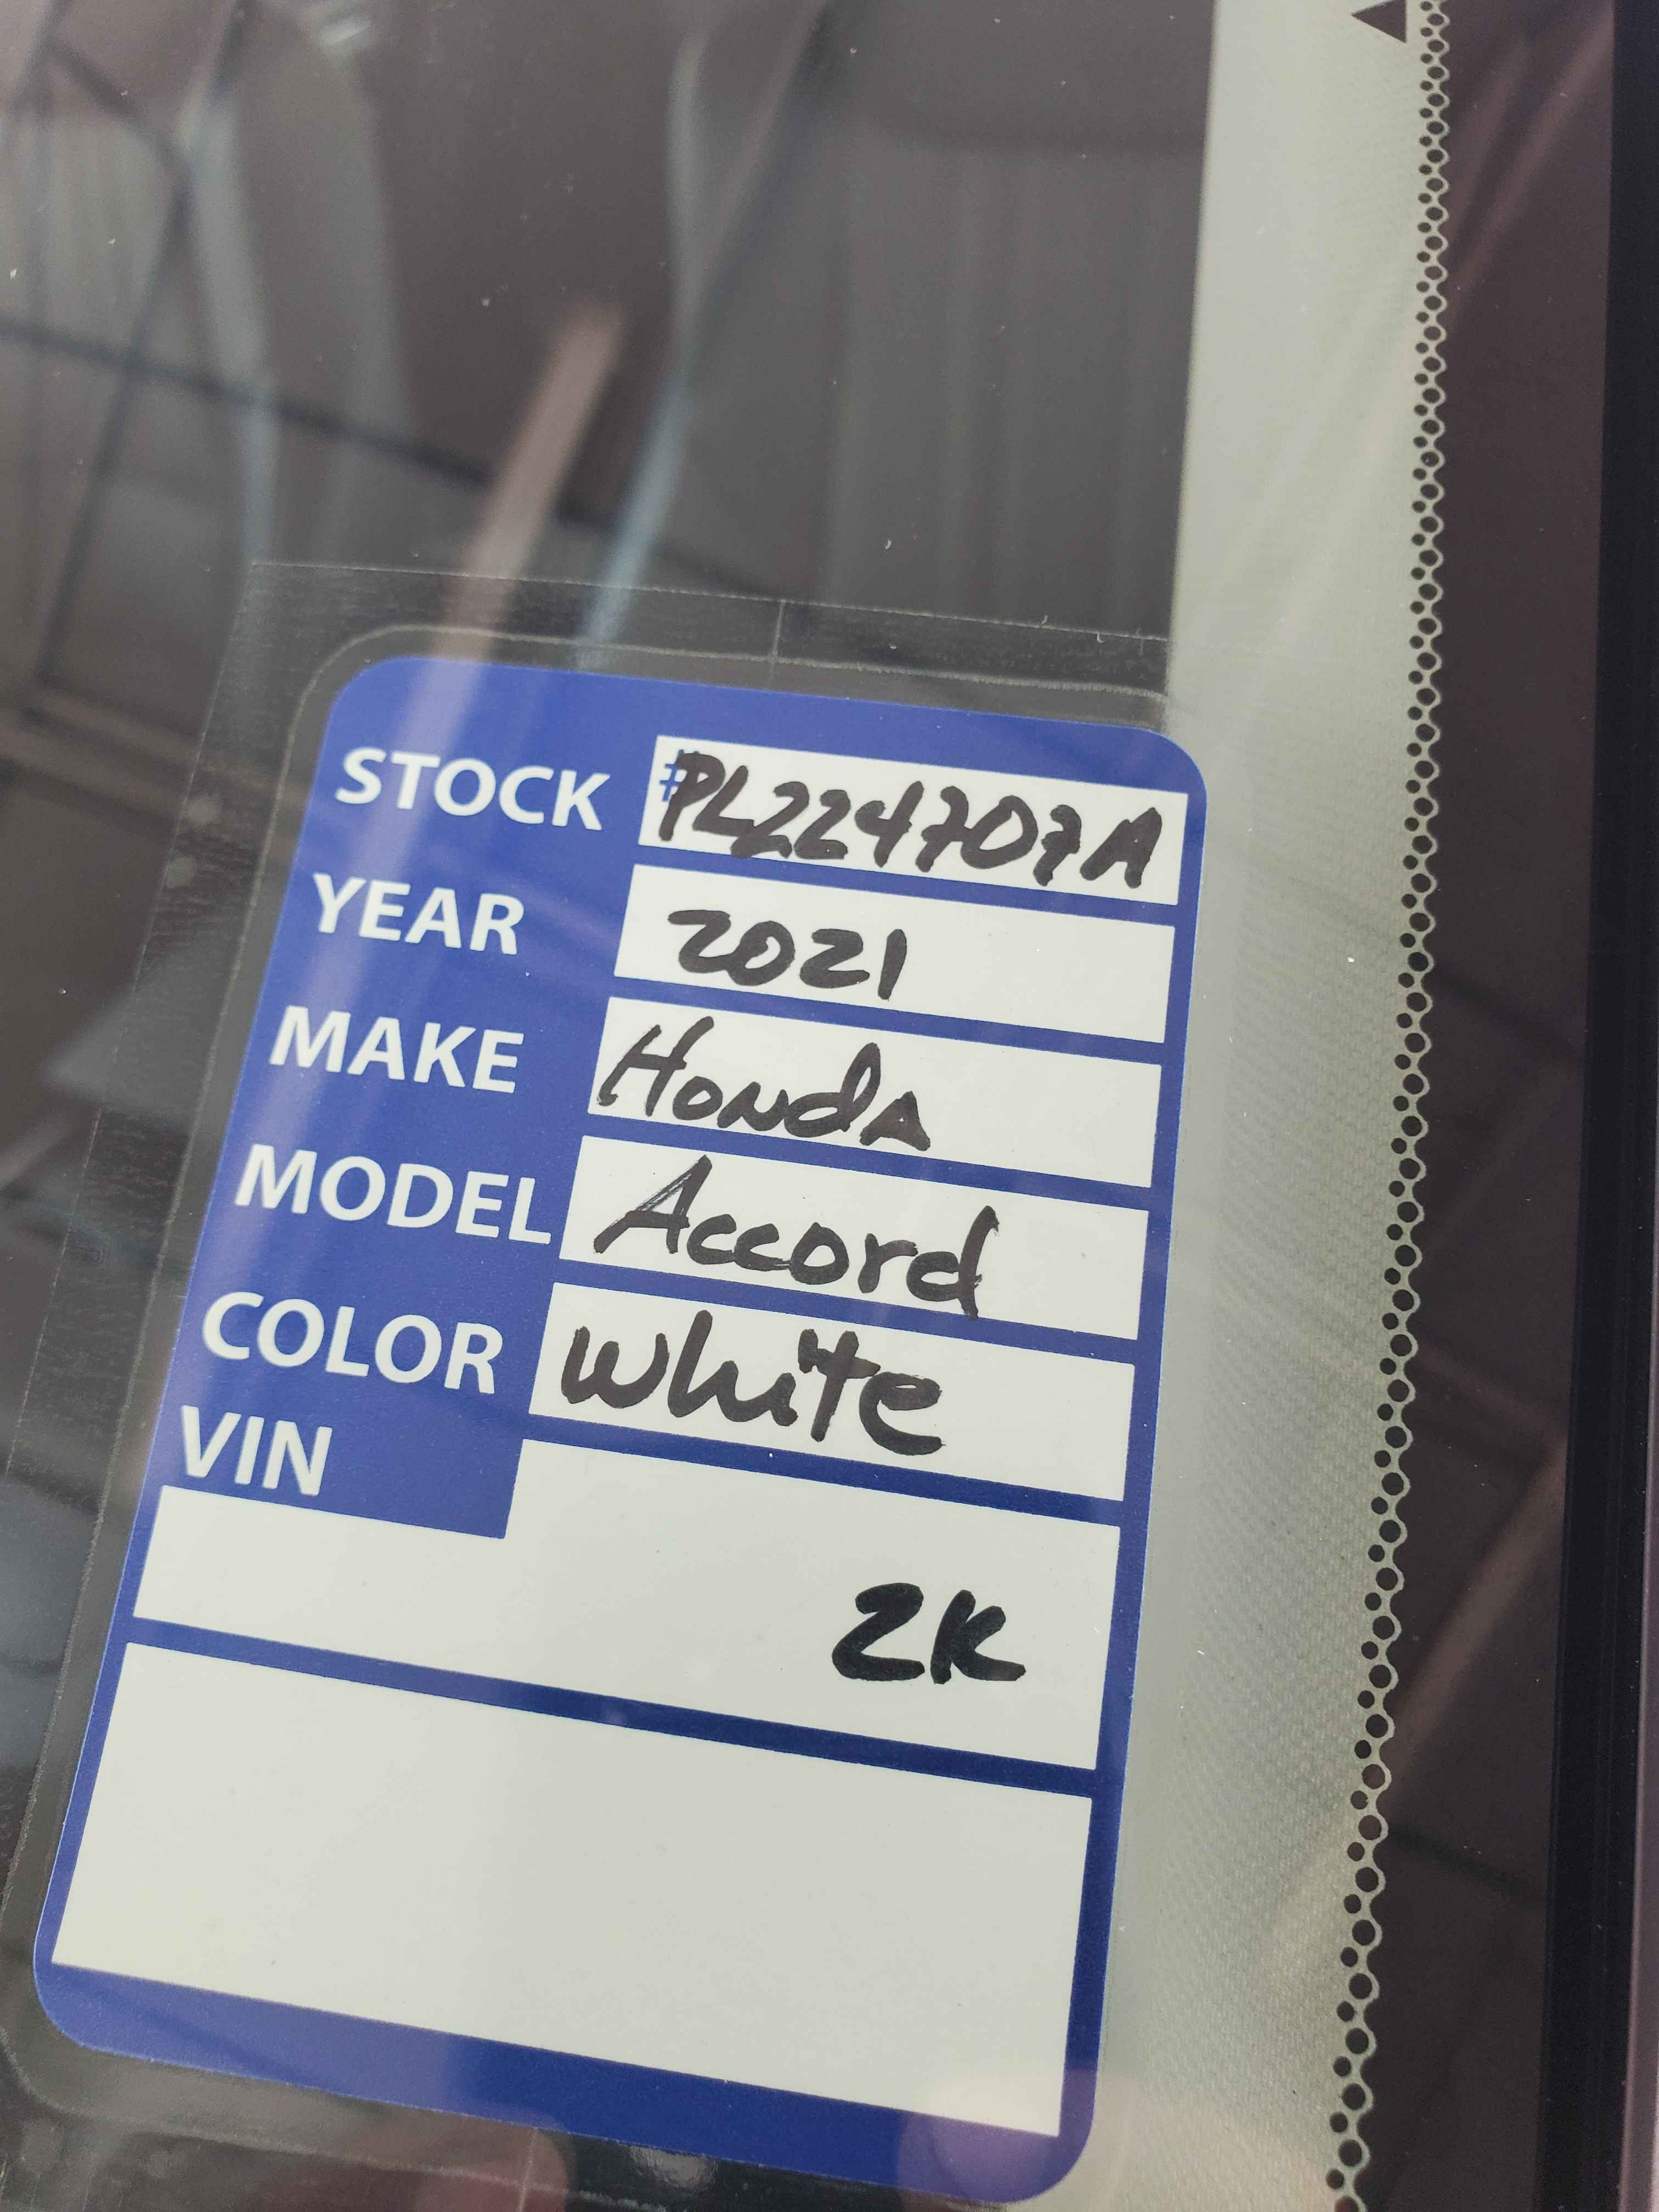 STOCK #PL224707A
YEAR 2021
MAKE Honda
MODEL Accord
COLOR White
VIN
2K